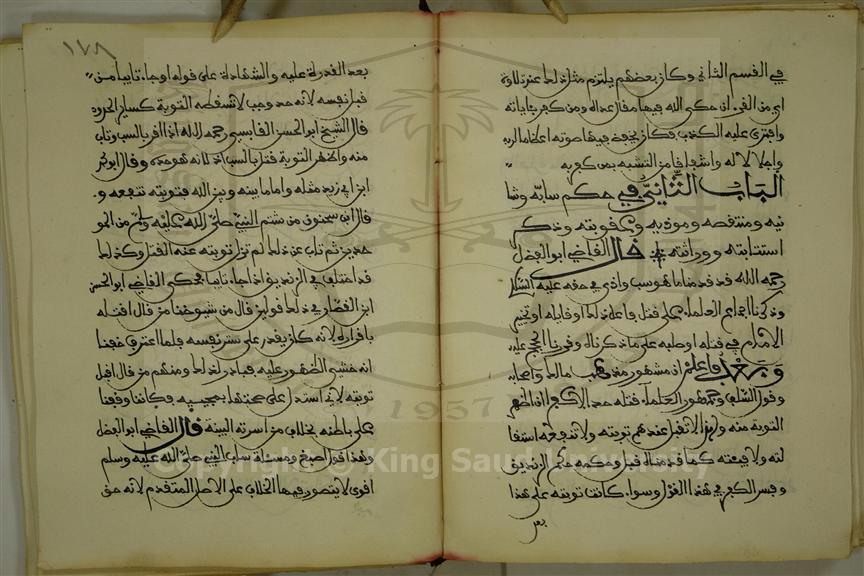 في القسم الثاني وكان بعضهم يلتزم مثل ذلك عند تلاوة
اي من القرءان حكى الله فيها مقال عداه ومن كفر بآياته
وافترى عليه الكذب فكان يخفض فيها صوته اعظاما لربه
واجلالا له واشفاقا من التشبه بمن كفر به
الباب الثاني في حكم سابه وشا
نيه ومنتقصه وموذيه وعقوبته وذكر
استتابته ووراثته قال القاضي ابو الفضل
رحمه الله قد قدمنا ما هو سب واذى في حقه عليه السلام
وذكرنا اجماع العلماء على قتل فاعل ذلك او قايله او تخيير
الامام في قتله او صلبه على ما ذكرناه وقررنا الحجج عليه
وبعد فاعلم ان مشهور مذهب مالك واصحابه
وقول السلف وجمهور العلماء قتله حدا لا كفرا ان اظهر
التوبة منه ولهذا لا تقبل عندهم توبته ولا تنفعه استقا
لته ولا فيئته كما قدمناه قبل وحكمه حكم الزنديق
ومسر الكفر في هذا القول وسواء كانت توبته على هذا
بعد
١٧٨
بعد القدرة عليه والشهادة على قوله او جاء تايبا من
قبل نفسه لانه حد وجب لا تسقطه التوبة كساير الحدود
قال الشيخ ابو الحسن القابسي رحمه الله اذا اقر بالسب وتاب
منه واظهر التوبة قتل بالسب لانه هو حده وقال ابو محمد
ابن ابي زيد مثله واما ما بينه وبين الله فتوبته تنفعه و
قال ابن سحنون من شتم النبي صلى الله عليه وسلم من المو
حدين ثم تاب عن ذلك لم تزل توبته عنه القتل وكذلك
قد اختلف في الزنديق اذا جاء تايبا فحكى القاضي ابو الحسن
ابن القصار في ذلك قولين قال من شيوخنا من قال اقتله
باقراره لانه كان يقدر على ستر نفسه فلما اعترف خفنا
انه خشي الظهور عليه فبادر لذلك ومنهم من قال اقبل
توبته لاني استدل على صحتها بمجيئه فكاننا وقفنا
على باطنه بخلاف من اسرته البينة قال القاضي ابو الفضل
وهذا قول اصبغ ومسئلة ساب النبي صلى الله عليه وسلم
اقوى لا يتصور فيها الخلاف على الاصل المتقدم لانه حق
1957
Copyright © King Saud University